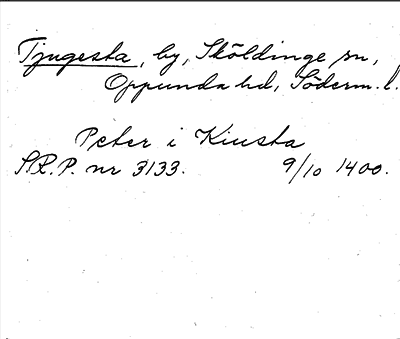 Tjugesta, by, Sköldinge sn,
Oppunda hd, Söderm. l.
Peter i Kiusta
S.R.P. nr 3133. 9/10 1400.